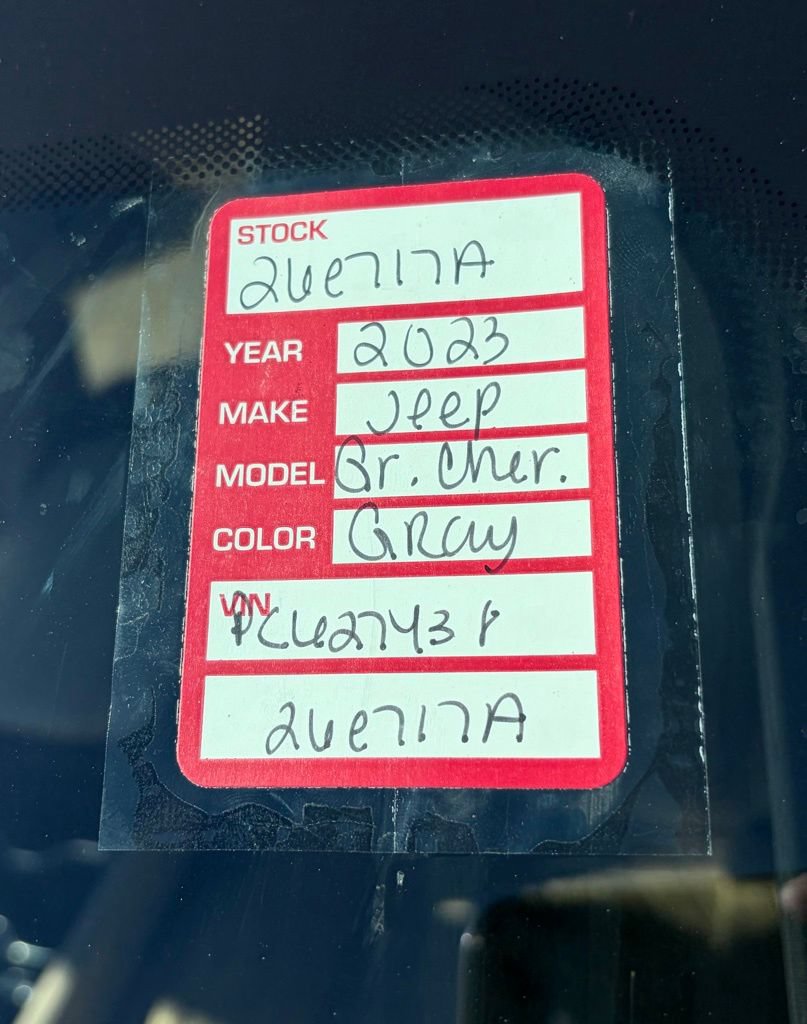 STOCK
26e717A
YEAR 2023
MAKE Jeep
MODEL Gr. Cher.
COLOR Gray
VIN
PC627438
26e717A